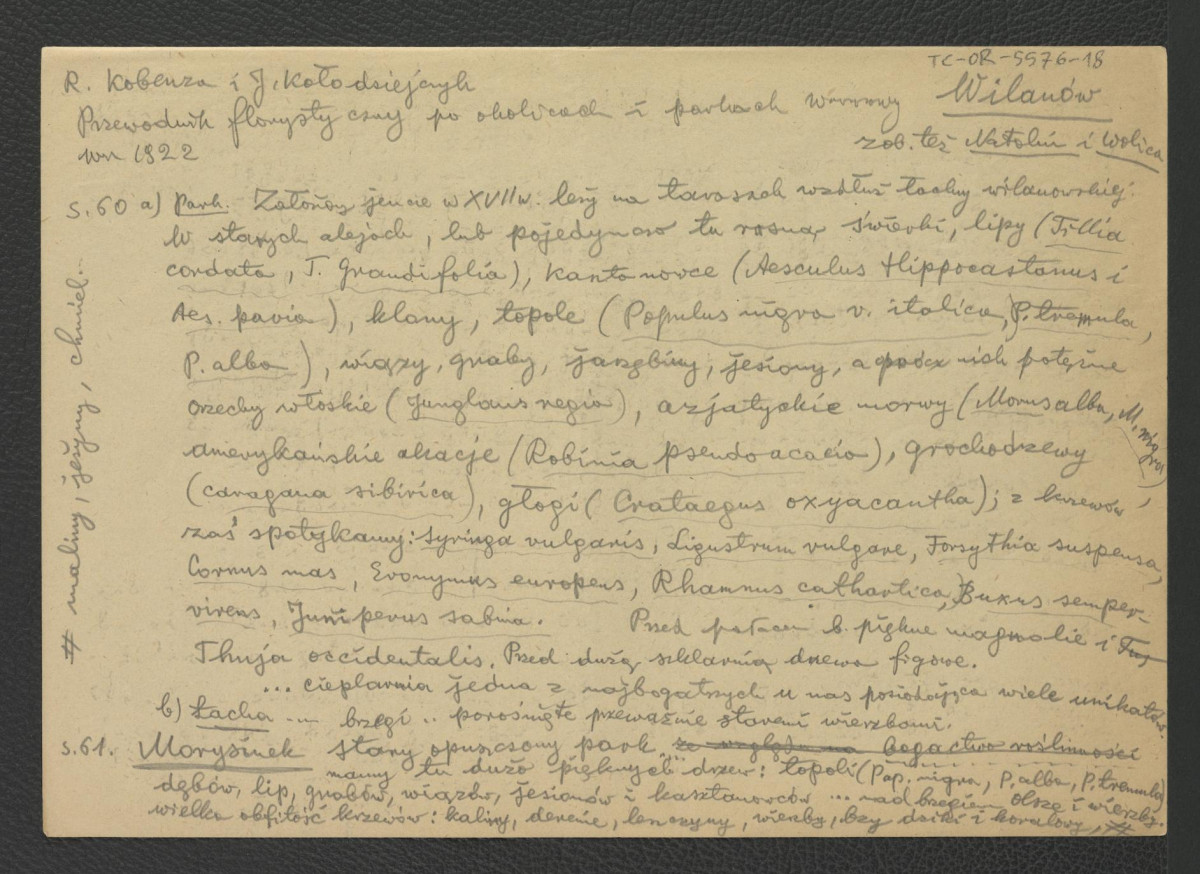 TC-OR-5576-18
R. Kobenza i J. Kołodziejczyk
Wilanów
Przewodnik florystyczny po okolicach i parkach Warszawy
zob. też Natolin i Wolica
W-wa 1922
s. 60 a) Park. Założony jeszcze w XVII w. leży na tarasach wzdłuż łachy wilanowskiej.
W starych alejach, lub pojedynczo tu rosną świerki, lipy (Tillia
cordata, T. Grandifolia), kasztanowce (Aesculus Hippocastanus i
Aes. pavia), klony, topole (Populus nigra v. italica, P. tremula,
P. alba), wiązy, graby, jarzębiny, jesiony, a prócz nich potężne
orzechy włoskie (Junglans regia), azjatyckie morwy (Morus alba, M. nigra),
amerykańskie akacje (Robinia pseudoacacia), grochodrzewy
(caragana sibirica), głogi (Crataegus oxyacantha); z krzewów
zaś spotykamy: Syringa vulgaris, Ligustrum vulgare, Forsythia suspensa,
Cornus mas, Evonymus europeus, Rhamnus cathartica, Buxus semper-
virens, Juniperus sabina. Przed pałacem b. piękne magnolie i Tuj
Thuja occidentalis. Przed dużą szklarnią drzewa figowe.
... cieplarnia jedna z najbogatszych u nas posiadająca wiele unikatów.
b) Łacha ... brzegi .. porośnięte przeważnie staremi wierzbami.
s. 61. Morysinek stary opuszczony park ze względu na bogactwo roślinności
mamy tu dużo pięknych drzew: topoli (Pop. nigra, P. alba, P. tremula)
dębów, lip, grabów, wiązów, jesionów i kasztanowców ... nad brzegiem olsze i wierzby.
wielka obfitość krzewów: kaliny, derenie, leszczyny, wierzby, bzy dziki i koralowy, #
# maliny, jeżyny, chmiel...